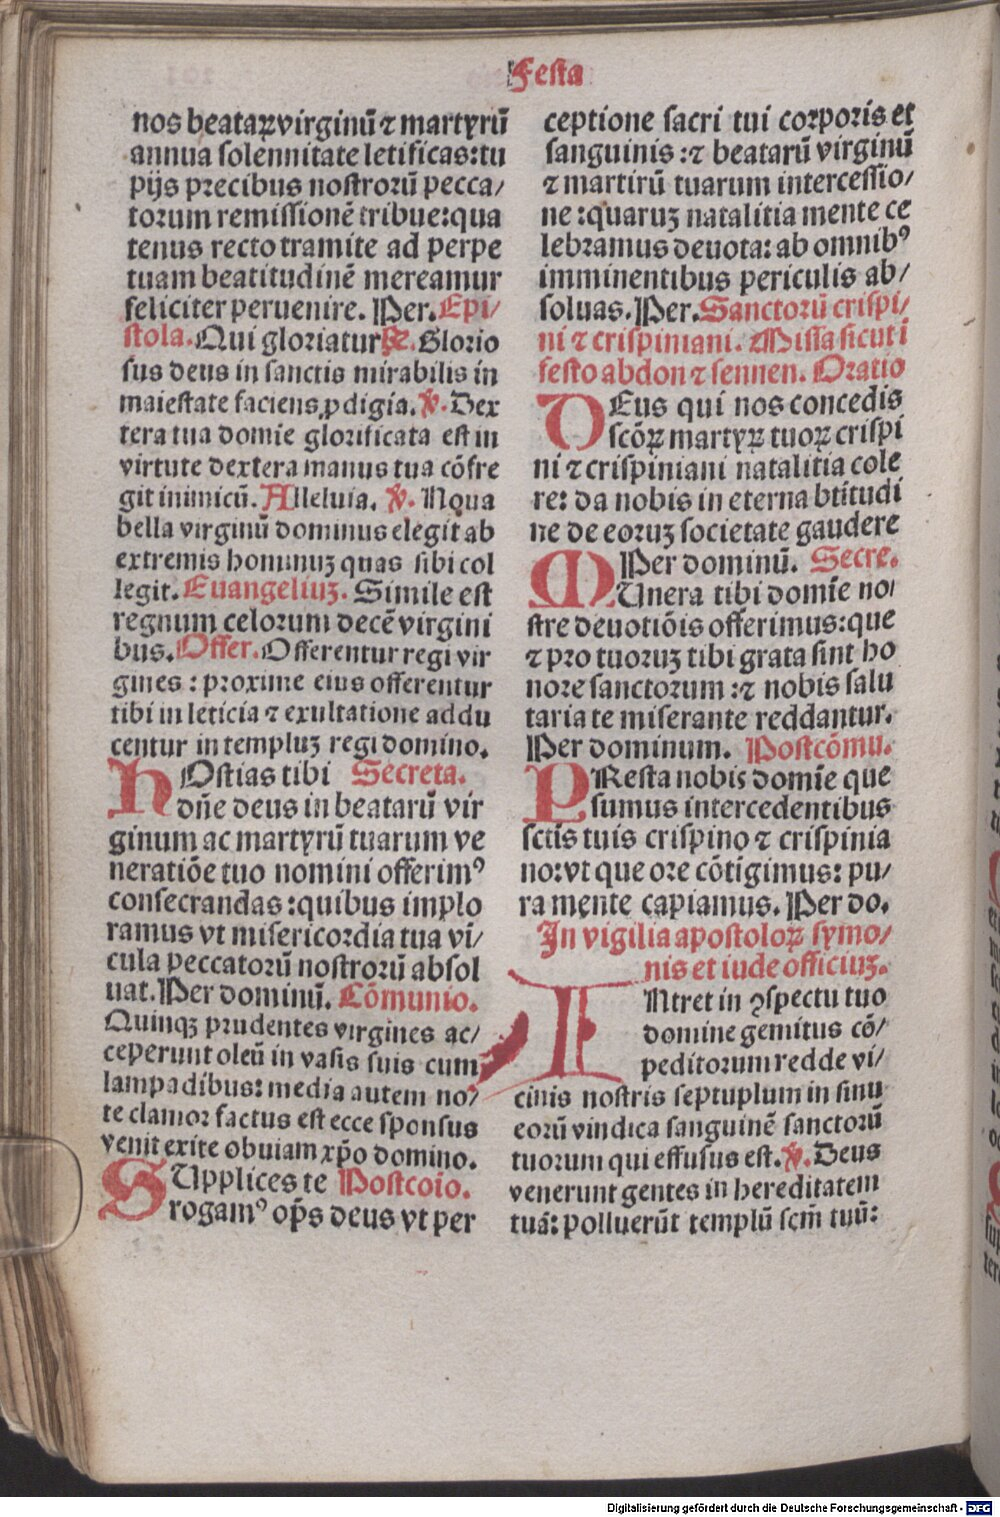 Festa
nos beataꝝ virginū ⁊ martyrū
annua solennitate letificas: tu
pijs precibus nostrorū pecca/
torum remissionē tribue: qua
tenus recto tramite ad perpe
tuam beatitudinē mereamur
feliciter peruenire. Per. Epi/
stola. Qui gloriatur Gͬe. Glorio
sus deus in sanctis mirabilis in
maiestate faciens ꝓdigia. ℣. Dex
tera tua domie glorificata est in
virtute dextera manus tua cōfre
git inimicū. Alleluia. ℣. Nqua
bella virginū dominus elegit ab
extremis hominuꝫ quas sibi col
legit. Euangeliuꝫ. Simile est
regnum celorum decē virgini
bus. Offer. Offerentur regi vir
gines: proxime eius offerentur
tibi in leticia ⁊ exultatione addu
centur in templuꝫ regi domino.
HOstias tibi Secreta.
dn̄e deus in beatarū vir
ginum ac martyrū tuarum ve
neratiōe tuo nomini offerimꝰ
consecrandas: quibus implo
ramus vt misericordia tua vī/
cula peccatorū nostrorū absol
uat. Per dominū. Cōmunio.
Quinqꝫ prudentes virgines ac/
ceperunt oleū in vasis suis cum
lampadibus: media autem no/
te clamor factus est ecce sponsus
venit exite obuiam xp̄o domino.
SUpplices te Postcoīo.
rogamꝰ op̄s deus vt per
ceptione sacri tui corporis et
sanguinis: ⁊ beatarū virginū
⁊ martirū tuarum intercessio/
ne: quaruꝫ natalitia mente ce
lebramus deuota: ab omnibꝰ
imminentibus periculis ab/
soluas. Per. Sanctorū crispi/
ni ⁊ crispiniani. Missa sicut ī
festo abdon ⁊ sennen. Oratio
DEus qui nos concedis
scōꝝ martyꝝ tuoꝝ crispi
ni ⁊ crispiniani natalitia cole
re: da nobis in eterna btītudi
ne de eoruꝫ societate gaudere
Per dominū. Secre.
MUnera tibi domīe no/
stre deuotiōis offerimus: que
⁊ pro tuoruꝫ tibi grata sint ho
nore sanctorum: ⁊ nobis salu
taria te miserante reddantur.
Per dominum. Postcōmu.
PResta nobis domīe que
sumus intercedentibus
sctīs tuis crispino ⁊ crispinia
no: vt que ore cōtigimus: pu/
ra mente capiamus. Per do.
In vigilia apostoloꝝ symo/
nis et iude officiuꝫ.
INtret in ꝯspectu tuo
domine gemitus cō/
peditorum redde vi/
cinis nostris septuplum in sinu
eorū vindica sanguinē sanctorū
tuorum qui effusus est. ℣. Deus
venerunt gentes in hereditatem
tuā: polluerūt templū scm̄ tuū:
Digitalisierung gefördert durch die Deutsche Forschungsgemeinschaft - DFG